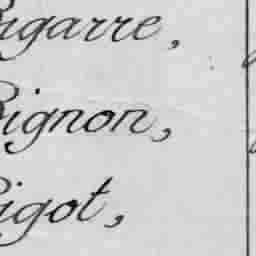 Bigarre,
Bignon,
Bigot,